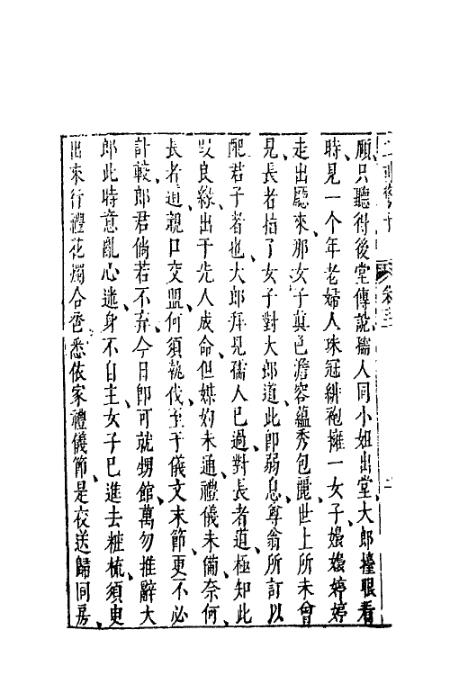 卷三
顧只聽得後堂傳說孺人同小姐出堂大郎擡眼看
時見一个年老婦人珠冠緋袍擁一女子嬝嬝婷婷
走出廳來那女子真色澹容蘊秀包麗世上所未曾
見長者指了女子對大郎道此即弱息尊翁所訂以
配君子者也大郎拜見孺人已過對長者道極知此
段良緣出于先人成命但媒妁未通禮儀未備奈何
長者道親口交盟何須執伐至于儀文末節更不必
計較郎君倘若不棄今日即可就甥館萬勿推辭大
郎此時意亂心迷身不自主女子已進去粧梳須臾
出來行禮花燭合卺悉依家禮儀節是夜送歸同房